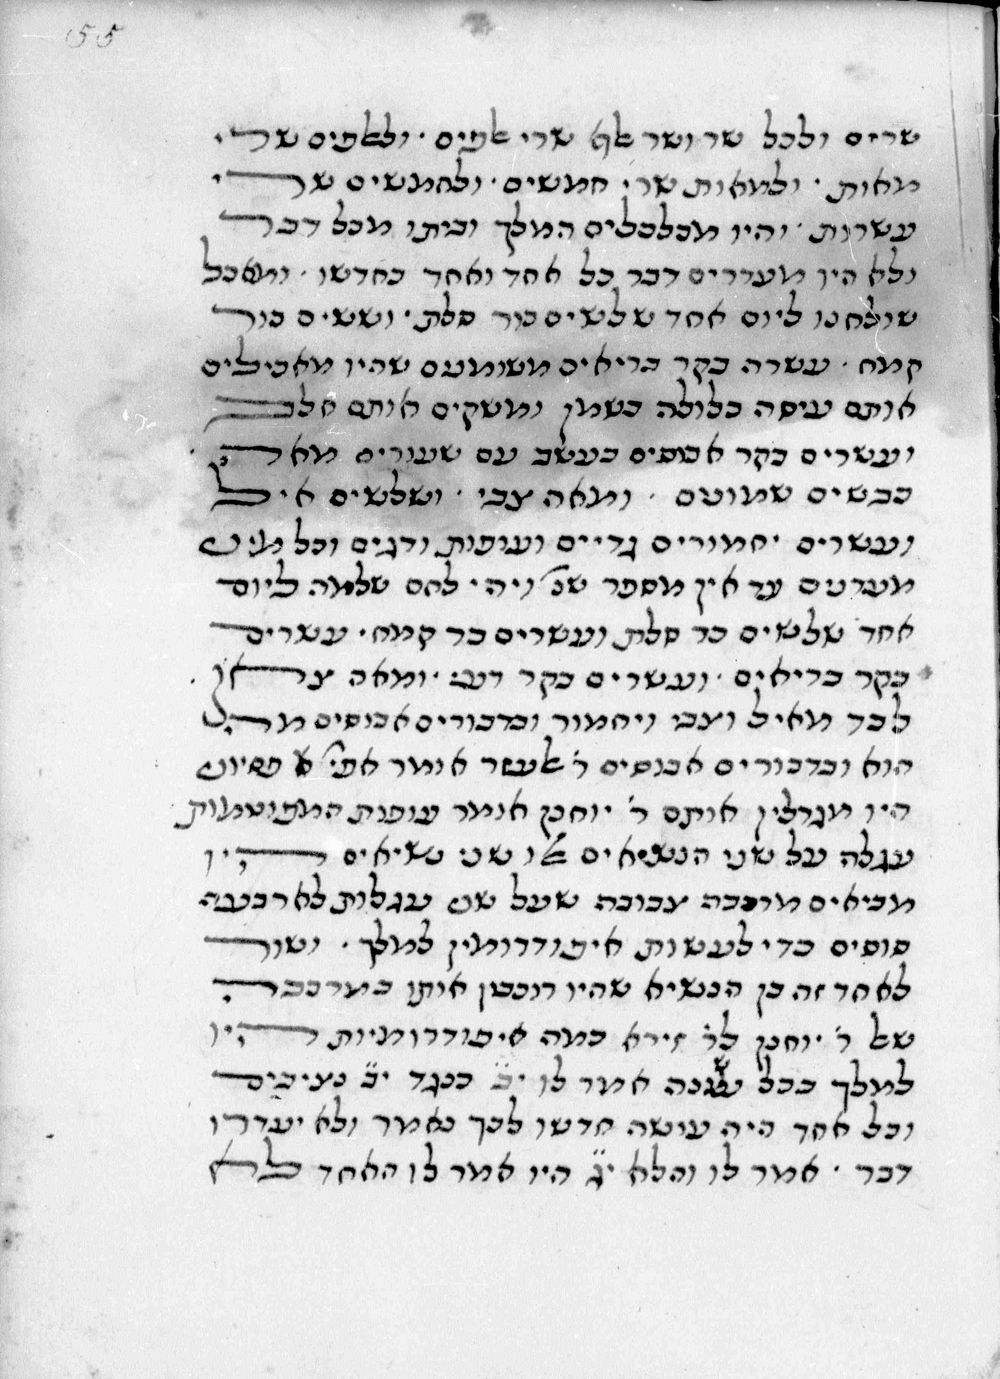 55
שרים ולכל שר ושר אלף שרי אלפים · ולאלפים שרי
מאות · ולמאות שרי חמשים · ולחמשים שרי
עשרות · והיו מכלכלים המלך וביתו מכל דבר
ולא היו מעדרים דבר כל אחד ואחד בחדשו · ומאכל
שולחנו ליום אחד שלשים כור סלת · וששים כור
קמח · עשרה בקר בריאים מפוטמים שהיו מאכילים
אותם עיסה בלולה בשמן ומשקים אותם חלב
ועשרים בקר אבוסים בעשב עם שעורים מאה
כבשים שמונים · ומאה צבי · ושלשים איל
ועשרים יחמורים גדיים ועופות ודגים וכל מיני
מעדנים עד אין מספר שנ' ויהי לחם שלמה ליום
אחד שלשים כר סלת ועשרים כר קמח · עשרים
בקר בריאים · ועשרים בקר רעי · ומאה צאן
לבד מאיל וצבי ויחמור וברבורים אבוסים מהו
הוא וברבורים אבוסים ר' אלעזר אומר אפי'
היו מגדלין אותם ר' יוחנן אומר עופות המפוטמות
עגלה על שני הנשיאים אלו שני נשיאים היו
מביאים מרכבה צבובה שעל שני עגלות לארבעה
סוסים כדי לעשות איפודרומין למלך · ושור
לאחד זה בן הנשיא שהיו רוכבין אותו במרכבה
של ר' יוחנן לר' זירא כמה איפודרומיות היו
למלך בכל שנה אמר לו י״ב כנגד י״ב נציבים
וכל אחד היה עושה חדשו לכך נאמר ולא יעדרו
דבר · אמר לו והלא י״ג היו אמר לו האחד לא